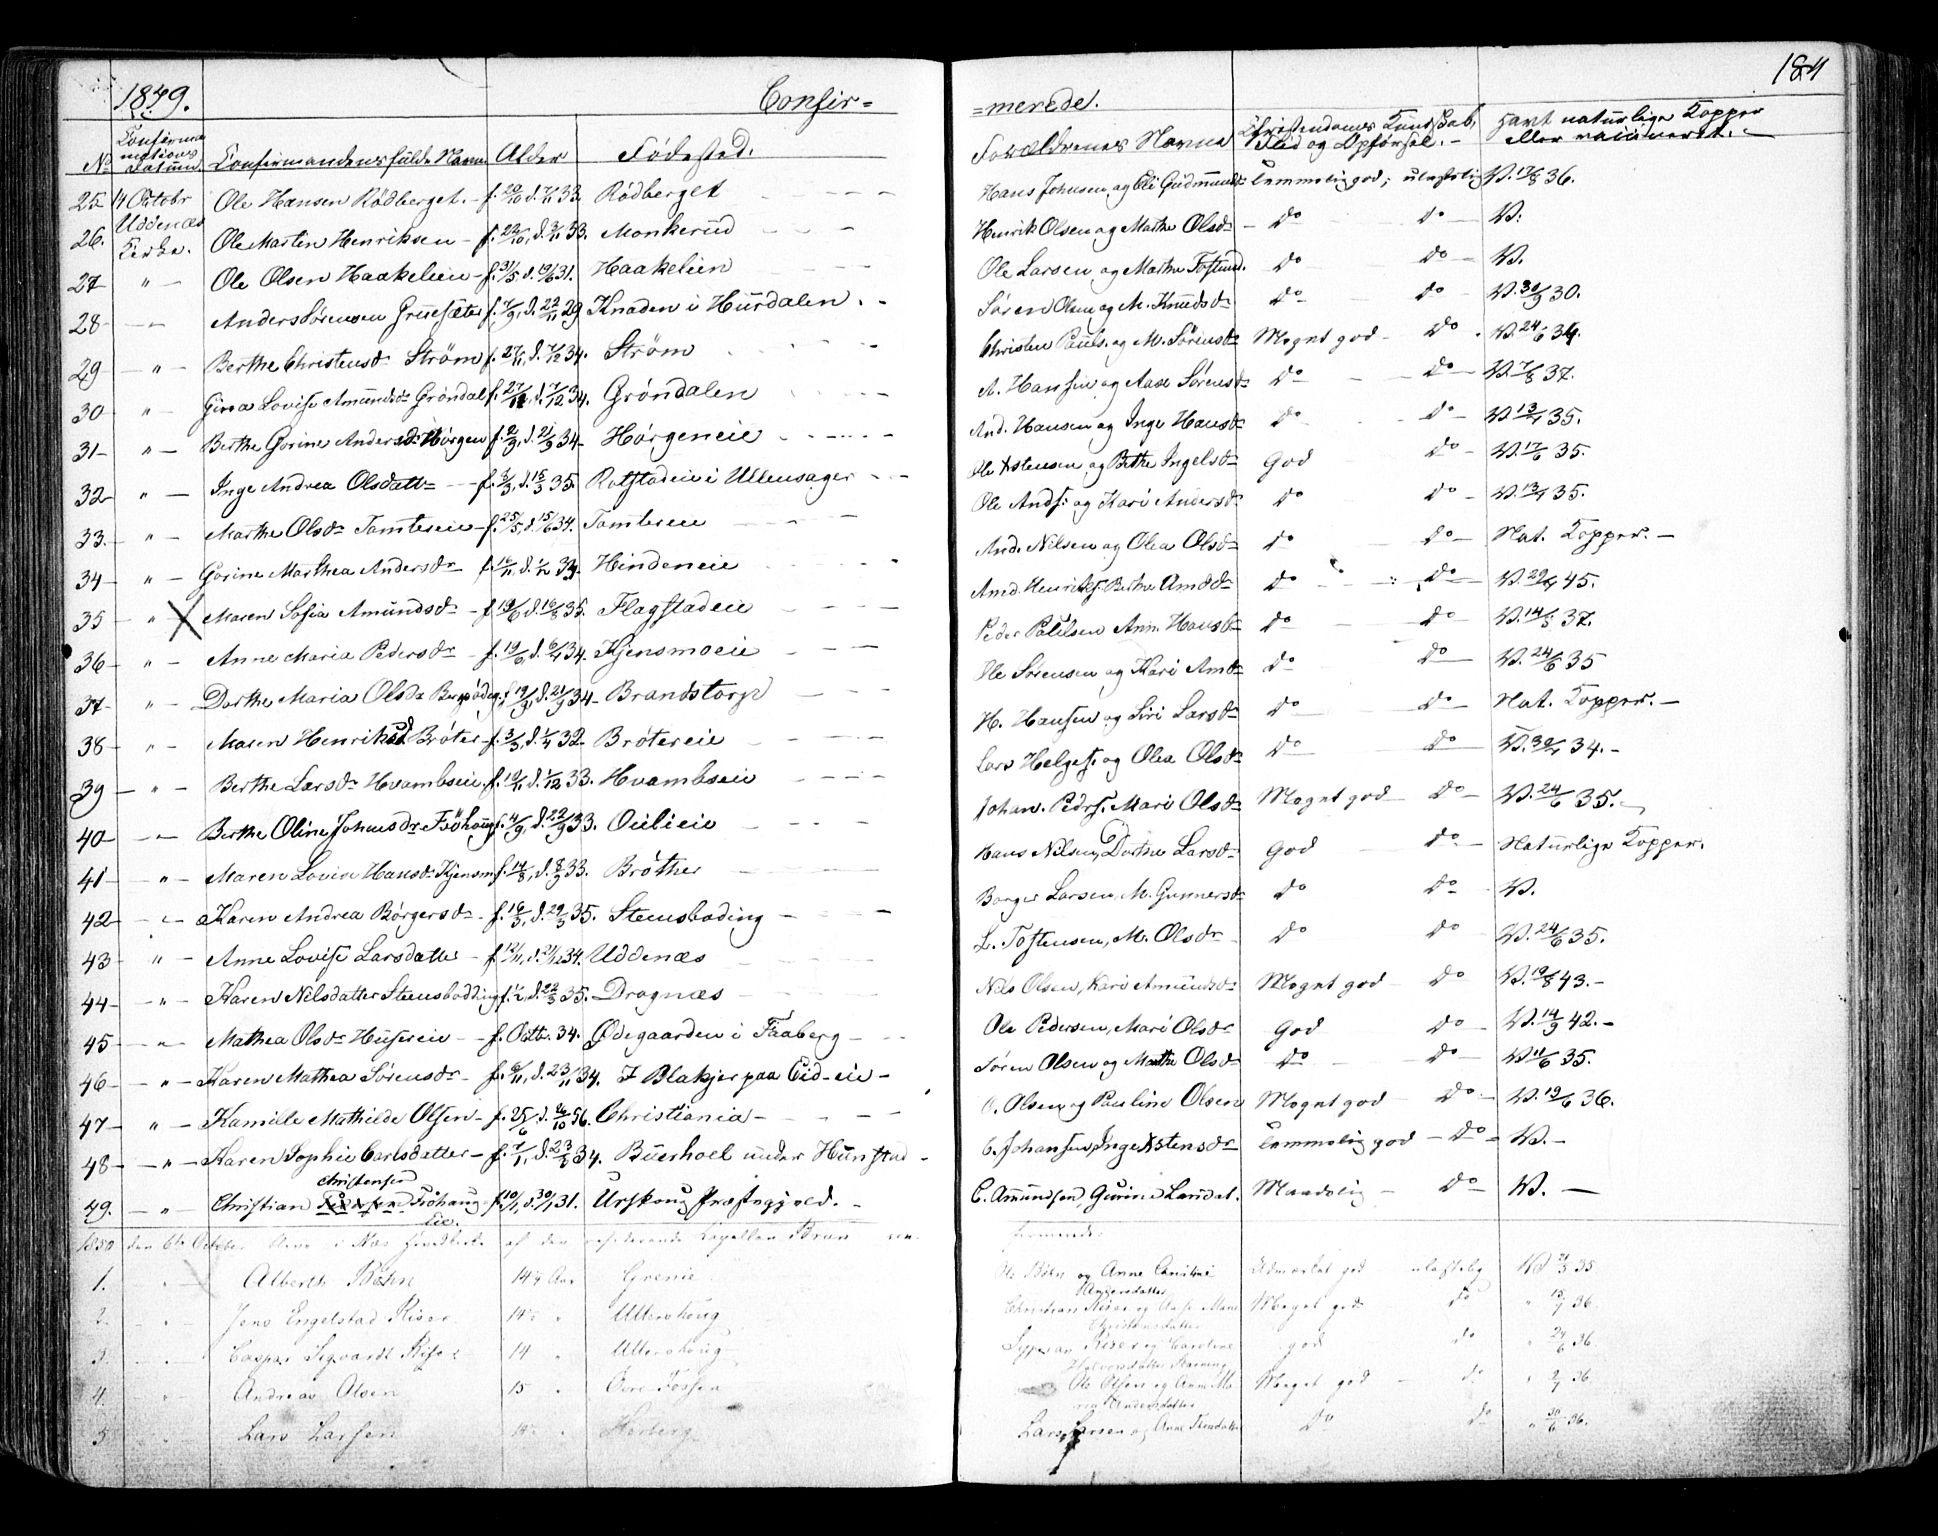 1849. Confir= =merede. 184
No Confirmations Datum. Confirmandens fulde Navn Alder Fødested. Forældrenes Navne Christendoms Kundskab, Flid og Opførsel. Havt naturlige Kopper eller vaccineret.
25 14 Octobr Ole Hansen Rødberget. f. 20/10 d. 7/11 33. Rødberget Hans Johnsen og Eli Gudmunds lemmelig god; ulastelig V. 17/8 36.
26. Uddenæs Kirke. Ole Martin Henriksen f. 22/10, d. 3/11 33. Monkerud Henrik Olsen og Marthe Olsd. do do V.
27 " Ole Olsen Haakelien f. 31/5 d. 19/6 31. Haakelien Ole Larsen og Marthe Tostend. do do V.
28 Anders Sørensen Gruesæter f. 7/9, d. 22/11 29 Knaden i Hurdalen. Søren Olsen og M. Knudsdr do do V. 30/9 30.
29 " Berthe Christensdr Strøm f. 27/11, d. 7/12 34. Strøm Christen Pauls. og M. Sørensdr Meget god do V. 24/6 36.
30 " Gina Lovise Amundsdr Grøndal f. 27/11, d. 7/12 34. Grøndalen A. Hansen og Aase Sørensdr do do V. 7/8 37.
31 " Berthe Gorine Andersdr Hørgen f. 2/9, d. 21/9 34 Hørgeneie And. Hansen og Inge Hansdr do do V. 13/7 35.
32 " Inge Andrea Olsdattr f. 3/3, d. 15/3 35. Rotstadeie i Ullensager Ole Astensen og Bethe Ingelsdr God do V. 17/6 35.
33. " Marthe Olsdr Tomtereie f. 25/5, d. 15/6 34. Tomtereie Ole Ands. og Kari Andersdr do do V. 13/7 35.
34 " Gorine Marthea Andersdr f. 16/11, d. 1/12 33. Hindeneie And. Nilsen og Olea Olsdr do do Nat. Kopper.
35 " X Maren Sofia Amundsdr f. 19/6, d. 16/8 35. Flagstadeie Amd. Henriks. Berthe Amddr do do V. 29/7 45.
36 " Anne Maria Pedersdr f. d. 6/4 34. Kjensmoeie Peder Paulsen Anne Hansdr do do V. 14/8 37.
37 " Dorthe Maria Olsdr f. 19/9, d. 21/9 34 Brandstorp Ole Sørensen og Kari Amdr do do V. 24/6 35
38 " Maren Henriksd. Brøter f. 3/3, d. 1/4 32 Brøtereie H. Hansen og Siri Larsdr do do Nat. Kopper.
39 " Berthe Larsdr Hvambseie f. 19/11, d. 1/12 33. Hvambseie Lars Helges. og Olea Olsdr do do V. 30/7 34.
40 " Berthe Oline Johnsdr Frøhaug f. 4/9, d. 22/9 33. Oulieie Johan. Peders. Mari Olsdr Meget god do V. 24/6 35.
41 " Maren Lovise Hansdr Kjensm. f. 14/8, d. 8/9 33. Brøther Hans Nilsen, Dorthe Larsdr God do Naturlige Kopper.
42 " Karen Andrea Børgersdr f. 16/3, d. 29/3 35. Steensboding Borger Larsen, M. Gunnersdr do do V.
43 " Anne Lovise Larsdatter f. 12/11, d. 34. Uddenæs L. Tostensen, M. Olsdr do do V. 24/6 35.
44 " Karen Nilsdatter Steensbodding f. 1/2, d. 22/3 35. Dragnæs Nils Olsen, Kari Amundsdr Meget god do V. 19/8 43.
45 " Mathea Olsdr Husereie f. Octb. 34. Ødegaarden i Faaberg Ole Pedersen, Mari Olsdr God do V. 14/9 42.
46 " Karen Mathea Sørensdr f. 6/11, d. 23/11 34. I Blakjer paa Eid-eie Søren Olsen og Marthe Olsdr do do V. 11/6 35.
47 " Kamille Mathilde Olsen f. 25/6 d. 26/10 Christiania O. Olsen og Pauline Olsen Meget god do V. 19/6 36.
48 " Karen Sophie Carlsdatter f. 7/1, d. 23/3 34. Buerhoel under Hunstad C. Johansen, Inge Astensdr lemmelig god do V.
49. " Christian Christensen Frøhaug Eie. f. 10/1, d. 30/1 31. Urskoug Præstegjeld. C. Amundsen, Gurine Larsdat. Maadelig do V.
1850 den 6te October i Næs Hovedkirke af den residerende Capellan Brun con- firmerede.
1. " Alberth Bøhn 14½ Aar Grenie Ole Bøhn og Anne Cathrine Andersdatter Udmærket god ulastelig Vd 35
2. " Jens Engelstad Riser 14½ " Ullershoug Christian Riser og Aase Marie Christensdatter Meget god do " 36.
3. Caspar Segvardt Riser 14 " Ullershoug Syperian Riser og Caroline Halvorsdatter god do " 24/6 36.
4. " Andreas Olsen 15 " Øvre Fossen Ole Olsen og Anne Maria Andersdatter Meget god do " 36
5 Lars Larsen 14½ " Herberg Lars Larsen og Anne do do " 30/6 36.